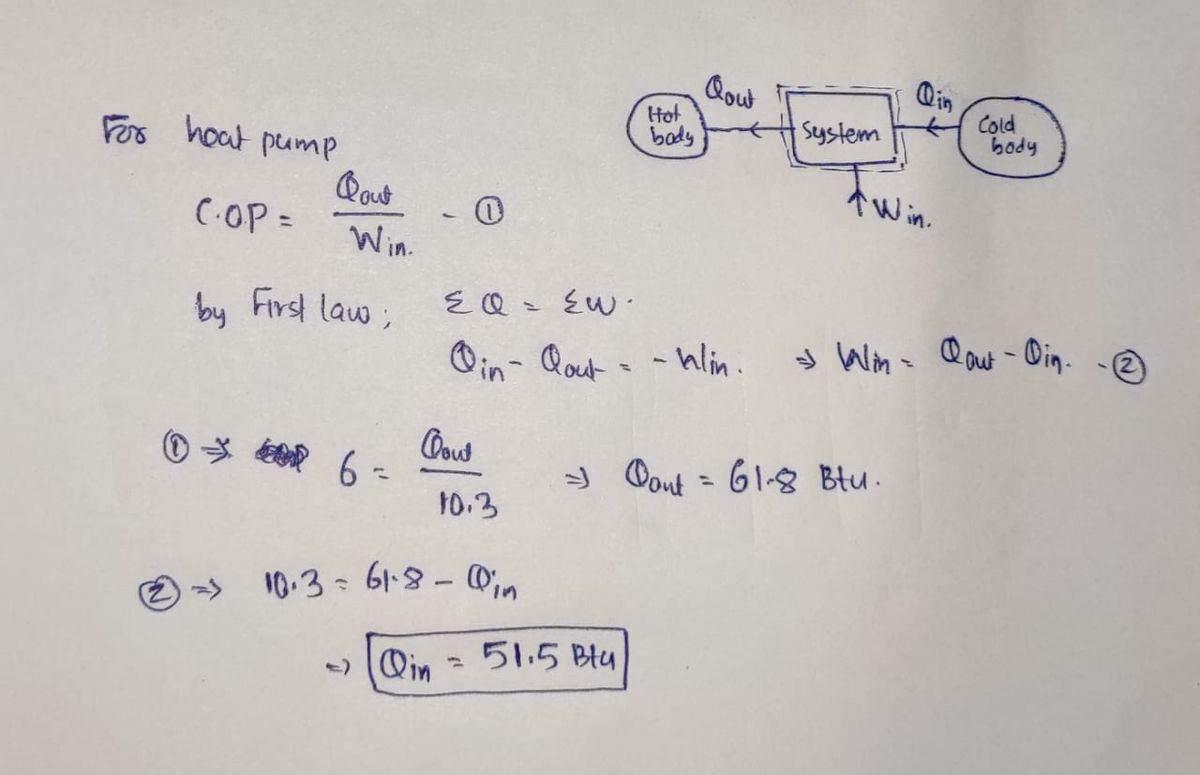 Qout
Qin
Hot
body
System
Cold
body
Win.
For heat pump
C.O.P = Qout / Win. - ①
by First law; ΣQ = ΣW.
Qin - Qout = - Win. ⇒ Win = Qout - Qin. - ②
① ⇒ 6 = Qout / 10.3 ⇒ Qout = 61.8 Btu.
② ⇒ 10.3 = 61.8 - Qin
⇒ Qin = 51.5 Btu